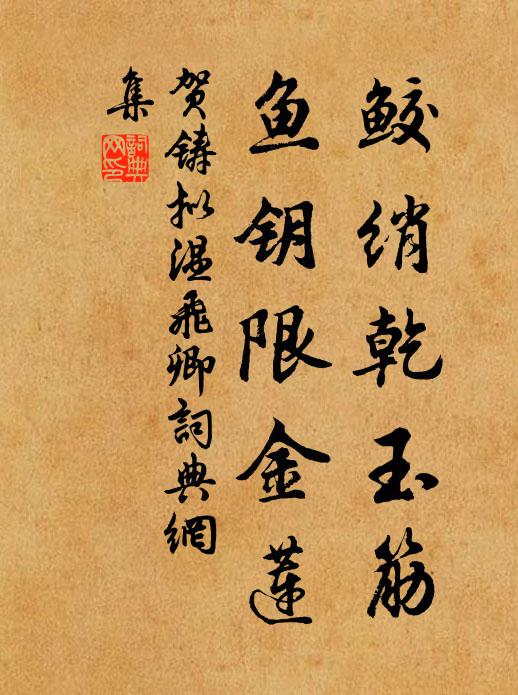 鲛绡乾玉筋
鱼钥限金莲
贺铸拟温飛卿詞典網
集
詞典网印